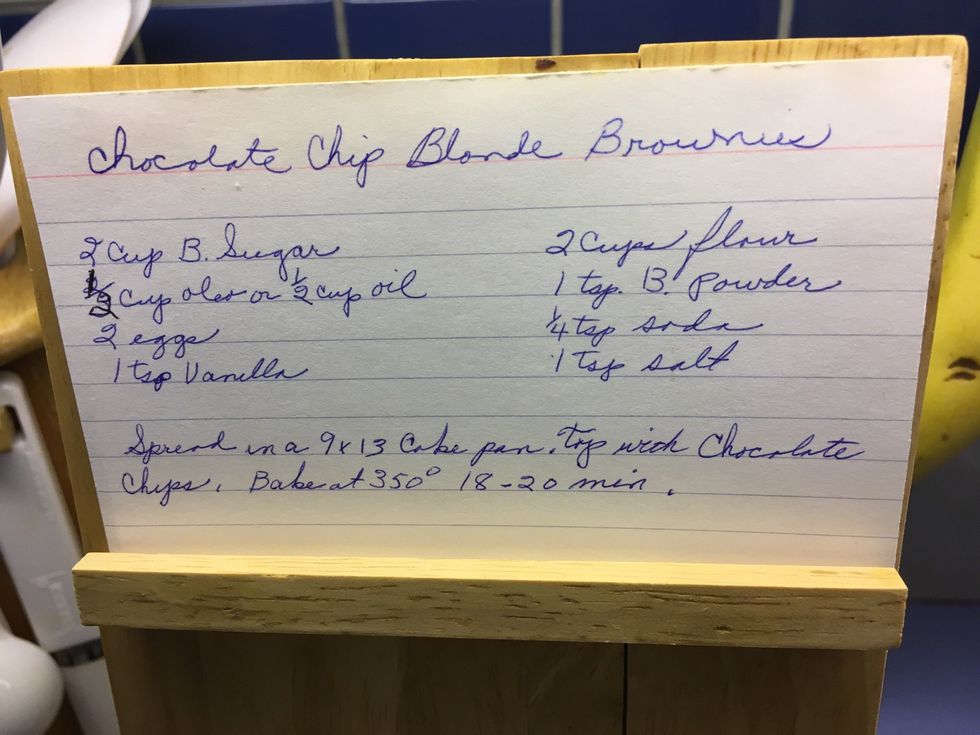 Chocolate Chip Blonde Brownies
2 Cup B. Sugar
1/2 Cup oleo or 1/2 cup oil
2 eggs
1 tsp Vanilla
2 Cups flour
1 tsp. B. Powder
1/4 tsp soda
1 tsp salt
Spread in a 9x13 Cake pan. Top with Chocolate
Chips. Bake at 350° 18-20 min.